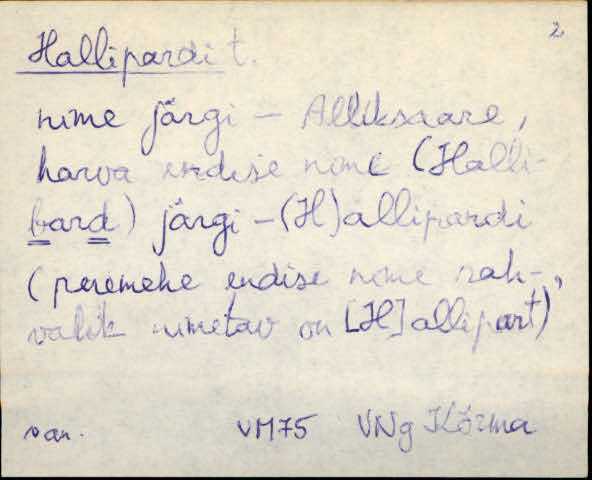 2
Hallipardi t.
nime järgi – Alliksaare,
harva endise nime (Halli-
bard) järgi – (H)allipardi
(peremehe endise nime rah-,
valik nimetav on [H]allipart)
van. VM75 VNg Kõrma